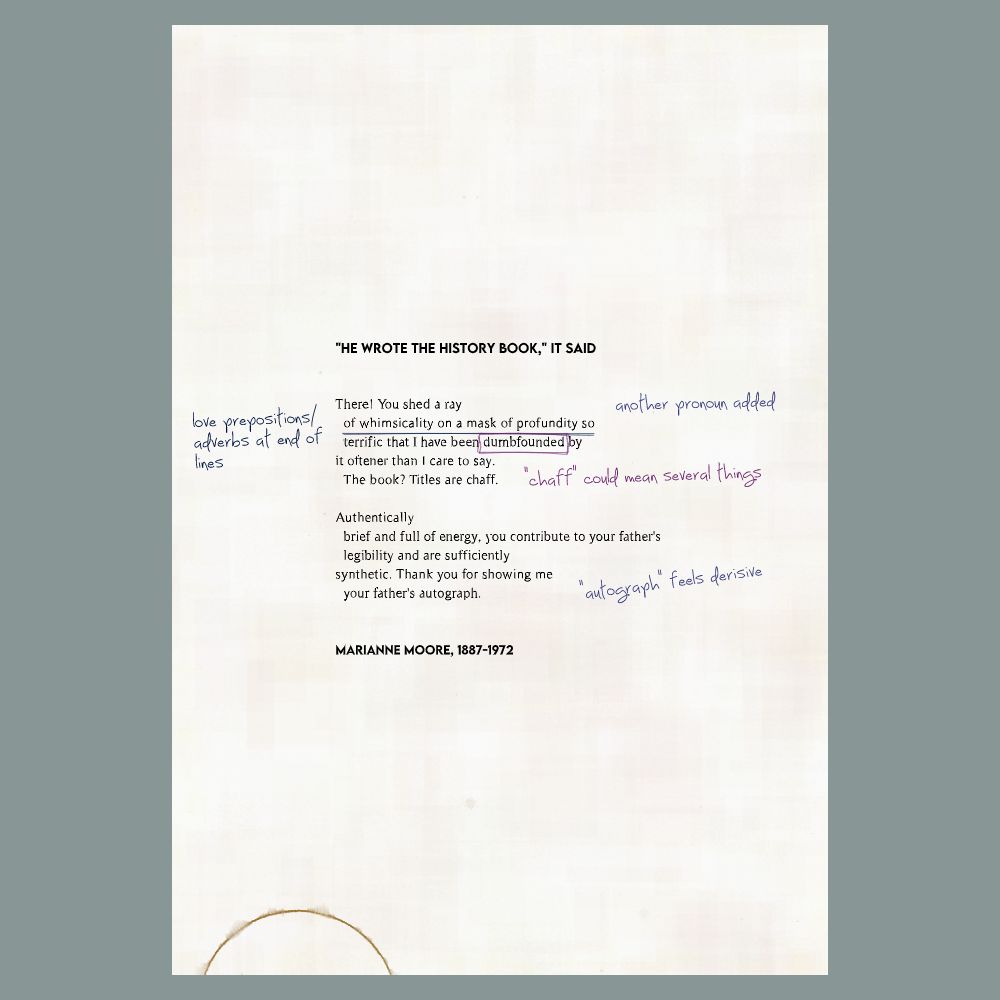 "HE WROTE THE HISTORY BOOK," IT SAID
There! You shed a ray
another pronoun added
of whimsicality on a mask of profundity so
terrific that I have been dumbfounded by
love prepositions/
adverbs at end of
lines
it oftener than I care to say.
The book? Titles are chaff.
"chaff" could mean several things
Authentically
brief and full of energy, you contribute to your father's
legibility and are sufficiently
synthetic. Thank you for showing me
your father's autograph.
"autograph" feels derisive
MARIANNE MOORE, 1887-1972